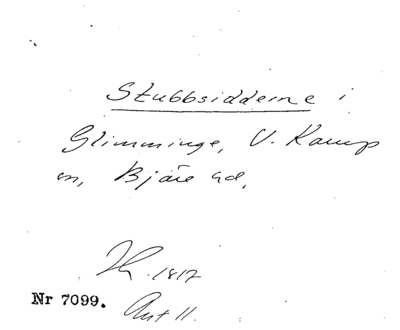 Stubbsidderne i
Glimminge, V. Karup
sn, Bjäre hd.
Th. 1817
Nr 7099.
Ant 11.